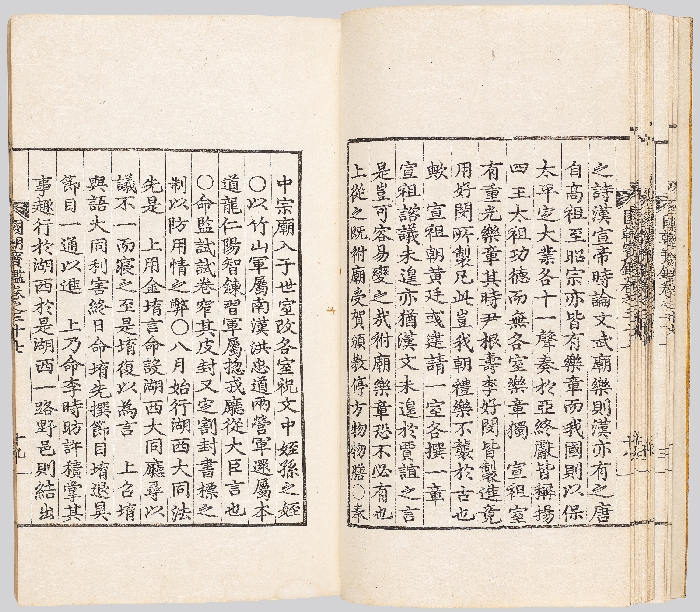 之詩漢宣帝時論文武廟樂則漢亦有之唐
自高祖至昭宗亦皆有樂章而我國則以保
太平定大業各十一聲奏於亞終獻皆稱揚
四王太祖功德而無各室樂章獨 宣祖室
有重光樂章其時尹根壽李好閔皆製進竟
用好閔所製凡此豈我朝禮樂不襲於古也
歟 宣祖朝黃廷彧建請一室各撰一章
宣祖諮議未遑亦猶漢文未遑於賈誼之言
是豈可容易變之哉祔廟樂章恐不必有也
上從之旣祔廟受賀頒教停方物物膳○奉
中宗廟入于世室改各室祝文中姪孫之姪
○以竹山軍屬南漢洪忠道兩營軍還屬本
道龍仁陽智鍊習軍屬摠戎廳從大臣言也
○命監試試卷窄其皮封又定割封書標之
制以防用情之弊○八月始行湖西大同法
先是 上用金堉言命設湖西大同廳尋以
議不一而寢之至是堉復以爲言 上召堉
與語大同利害終日命堉先撰節目堉退具
節目一通以進 上乃命李時昉許積掌其
事趣行於湖西於是湖西一路野邑則結出
國朝寶鑑卷之三十七
十九